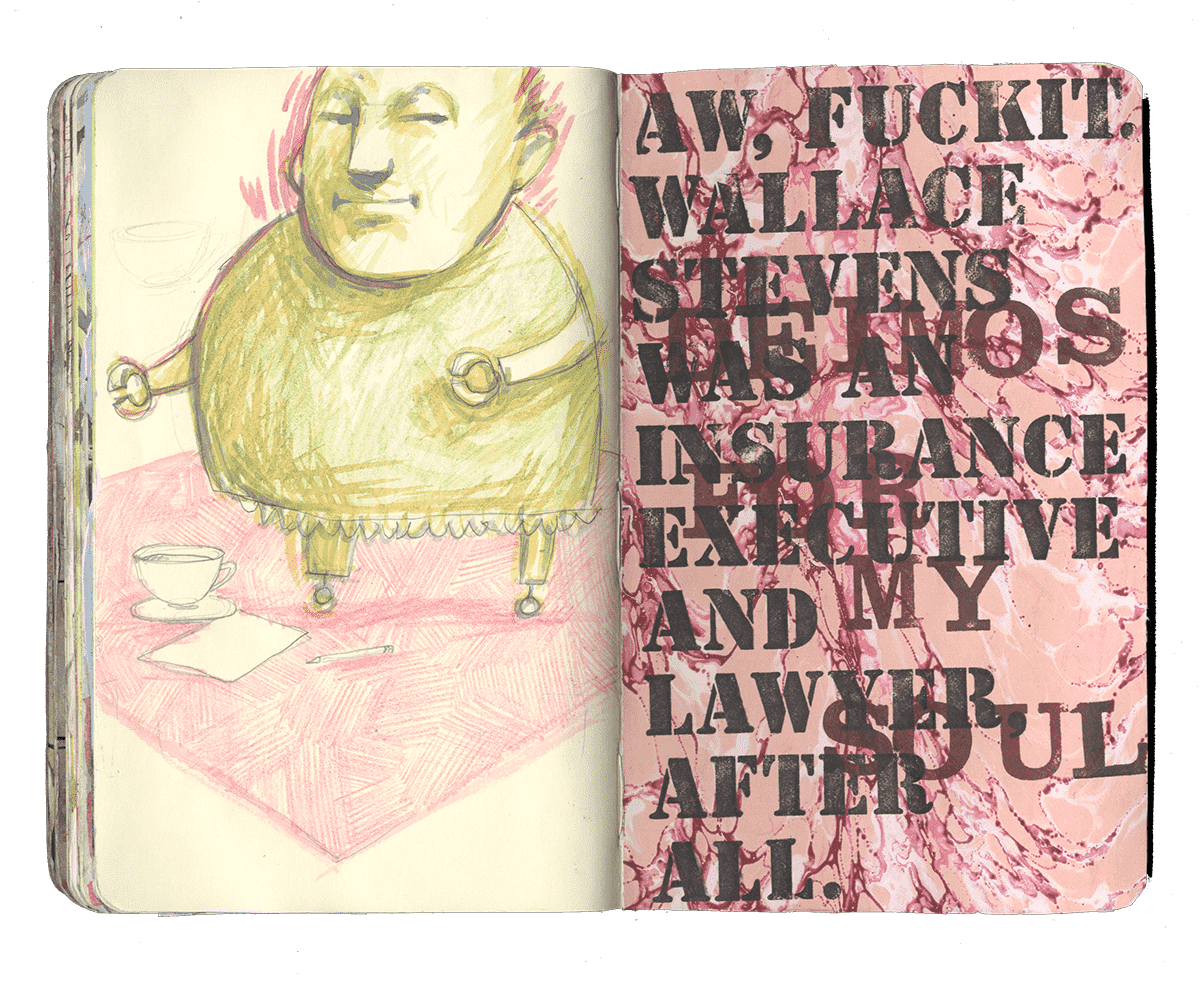 AW, FUCKIT.
WALLACE
STEVENS
WAS AN
INSURANCE
EXECUTIVE
AND
LAWYER,
AFTER
ALL.
MY
SOUL